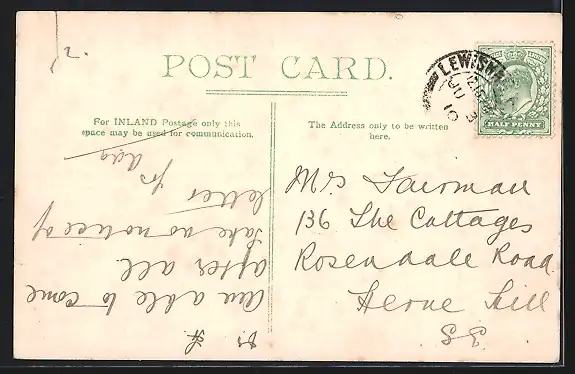 2.
POST CARD.
For INLAND Postage only this
space may be used for communication.
The Address only to be written
here.
LEWISH
JU 3
10
HALF PENNY
Mrs Fairman
136 The Cottages
Rosendale Road
Herne Hill
S.E.
Am able to come
after all.
Take no notice of
letter